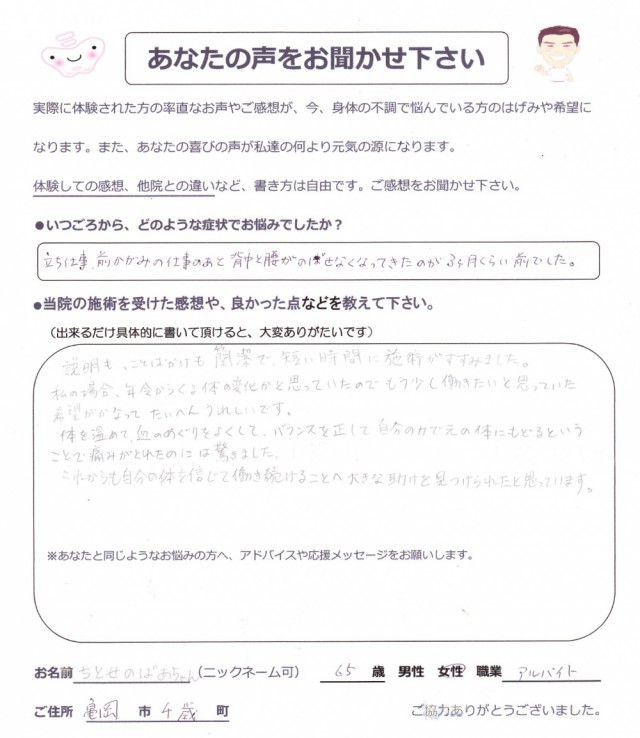 あなたの声をお聞かせ下さい
実際に体験された方の率直なお声やご感想が、今、身体の不調で悩んでいる方のはげみや希望に
なります。また、あなたの喜びの声が私達の何より元気の源になります。
体験しての感想、他院との違いなど、書き方は自由です。ご感想をお聞かせ下さい。
●いつごろから、どのような症状でお悩みでしたか？
立ち仕事、前かがみの仕事のあと背中と腰がのばせなくなってきたのが3ヶ月くらい前でした。
●当院の施術を受けた感想や、良かった点などを教えて下さい。
（出来るだけ具体的に書いて頂けると、大変ありがたいです）
説明も、ことばかけも簡潔で、短い時間に施術がすすみました。
私の場合、年令からくる体の変化かと思っていたのでもう少し働きたいと思っていた
希望がかなって たいへんうれしいです。
体を温めて、血のめぐりをよくして、バランスを正して自分の力で元の体にもどるという
ことで痛みがとれたのには驚きました。
これからも自分の体を信じて働き続けることへ大きな助けを見つけられたと思っています。
※あなたと同じようなお悩みの方へ、アドバイスや応援メッセージをお願いします。
お名前 ちとせのばあちゃん（ニックネーム可） 65 歳 男性 女性 職業 アルバイト
ご住所 亀岡 市 千歳 町 ご協力ありがとうございました。